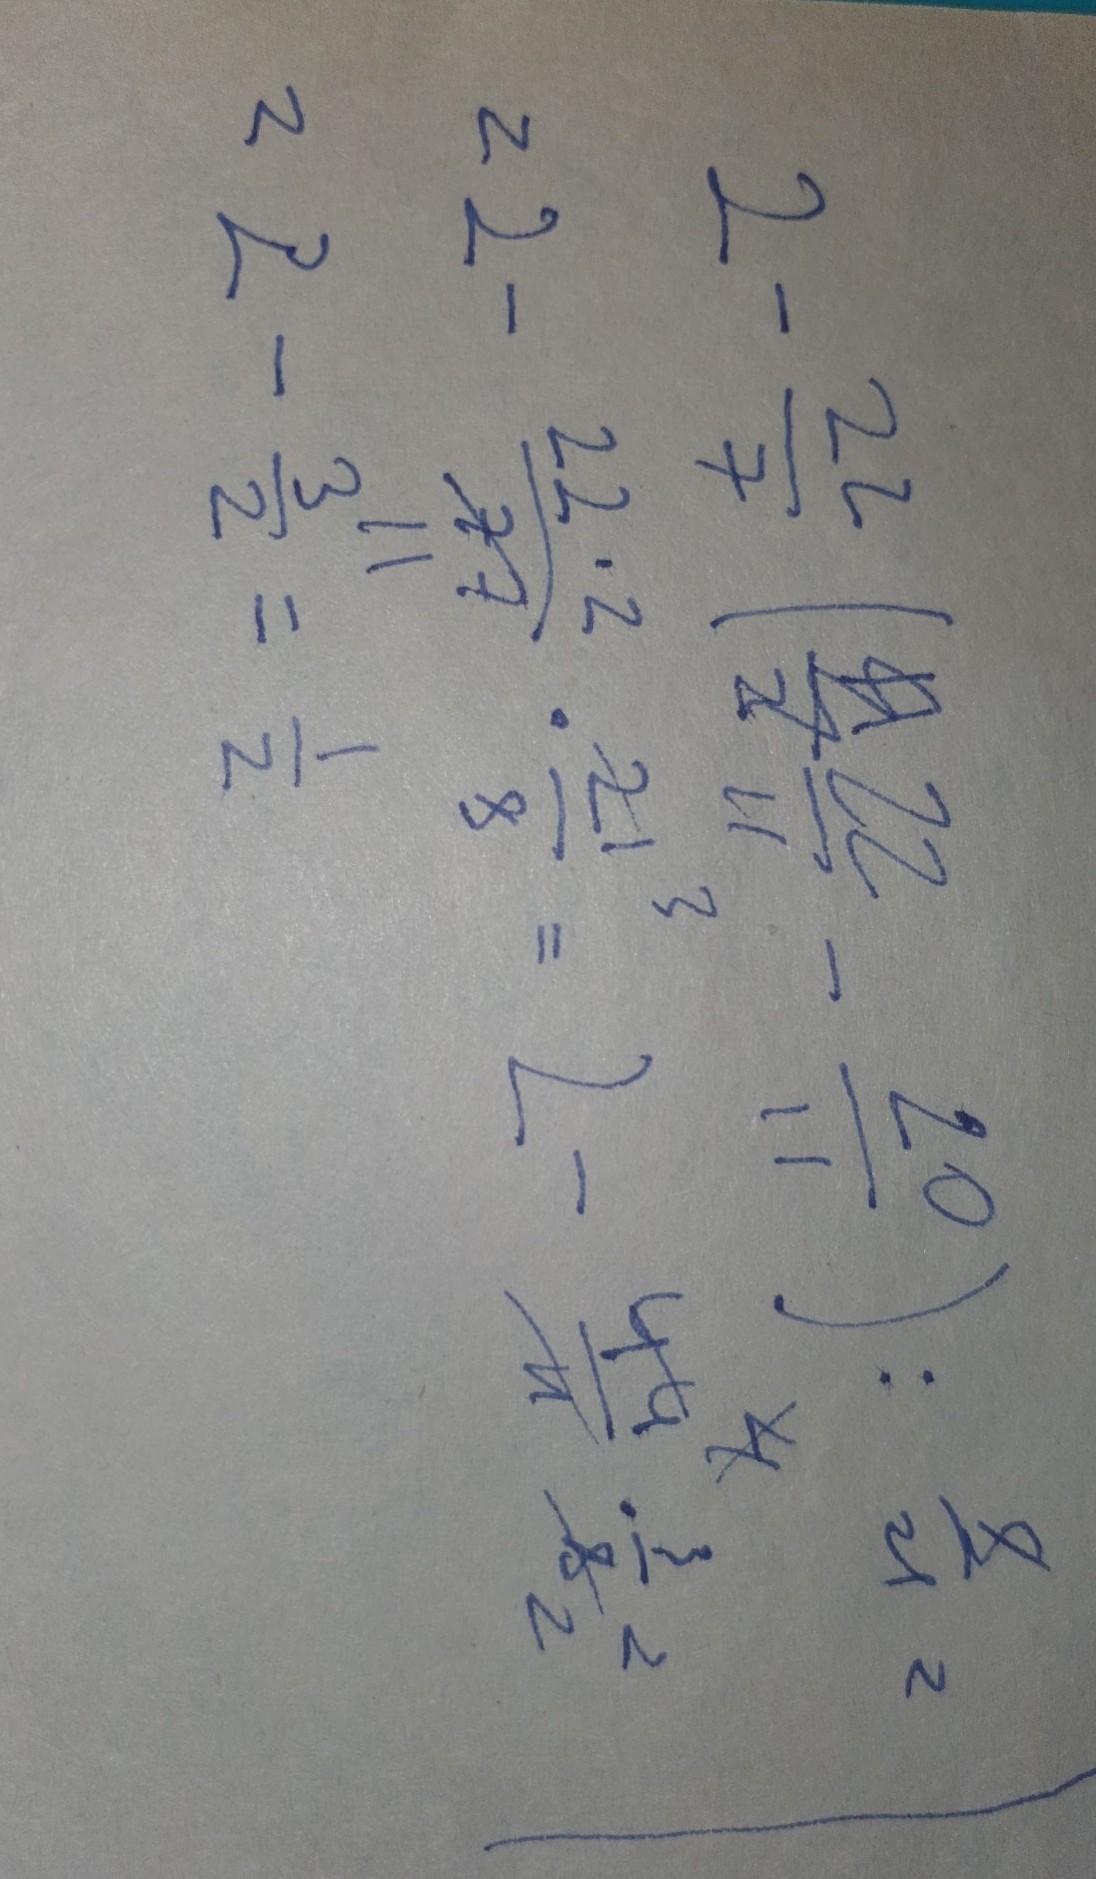 2 - 22/7 (22/11 - 20/11) : 8/21 =
= 2 - 22·2/77 · 21/8 = 2 - 44/11 · 3/8 =
= 2 - 3/2 = 1/2